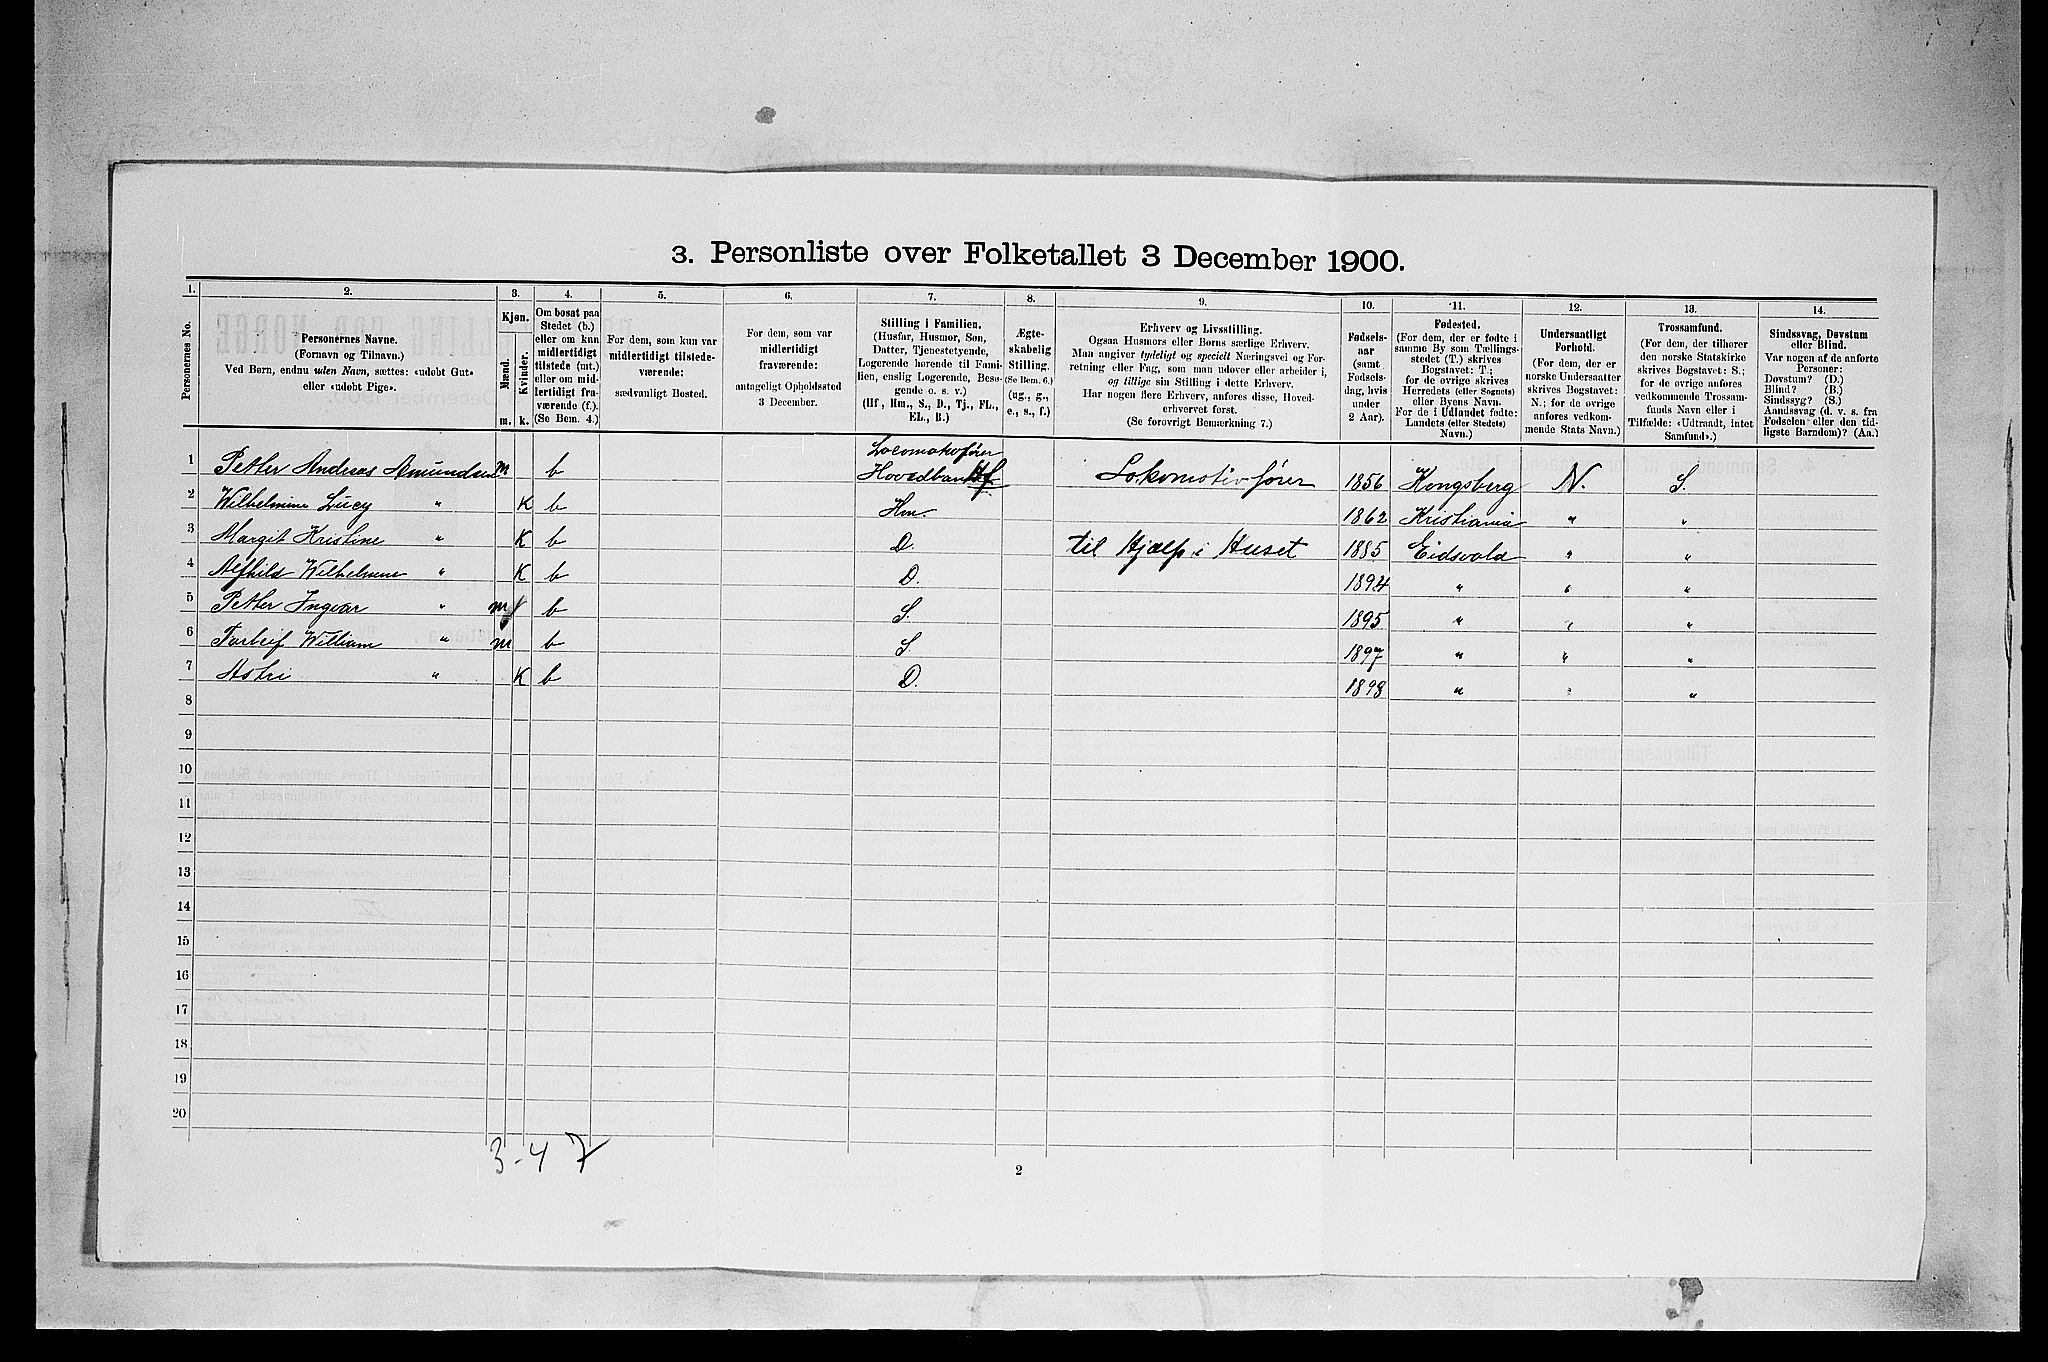 3. Personliste over Folketallet 3 December 1900.
1. 2. 3. 4. 5. 6. 7. 8. 9. 10. 11. 12. 13. 14.
Personernes No.
Personernes Navne.
(Fornavn og Tilnavn.)
Ved Børn, endnu uden Navn, sættes: «udøbt Gut»
eller «udøbt Pige».
Kjøn.
Mænd.
Kvinder.
m. k.
Om bosat paa
Stedet (b.)
eller om kun
midlertidigt
tilstede (mt.)
eller om mid-
lertidigt fra-
værende (f.).
(Se Bem. 4.)
For dem, som kun var
midlertidigt tilstede-
værende:
sædvanligt Bosted.
For dem, som var
midlertidigt
fraværende:
antageligt Opholdssted
3 December.
Stilling i Familien.
(Husfar, Husmor, Søn,
Datter, Tjenestetyende,
Logerende hørende til Fami-
lien, enslig Logerende, Besø-
gende o. s. v.)
(Hf., Hm., S., D., Tj., FL.,
EL., B.)
Ægte-
skabelig
Stilling.
(Se Bem. 6.)
(ug., g.,
e., s., f.)
Erhverv og Livsstilling.
Ogsaa Husmors eller Børns særlige Erhverv.
Man angiver tydeligt og specielt Næringsvei og For-
retning eller Fag, som man udøver eller arbeider i,
og tillige sin Stilling i dette Erhverv.
Har nogen flere Erhverv, anføres disse, Hoved-
erhvervet først.
(Se forøvrigt Bemærkning 7.)
Fødsels-
aar
(samt
Fødsels-
dag, hvis
under
2 Aar).
Fødested.
(For dem, der er fødte i
samme By som Tællings-
stedet (T.) skrives
Bogstavet: T.;
for de øvrige skrives
Herredets (eller Sognets)
eller Byens Navn.
For de i Udlandet fødte:
Landets (eller Stedets)
Navn.)
Undersaatligt
Forhold.
(For dem, der er
norske Undersaatter
skrives Bogstavet:
N.; for de øvrige
anføres vedkom-
mende Stats Navn.)
Trossamfund.
(For dem, der tilhører
den norske Statskirke
skrives Bogstavet: S.;
for de øvrige anføres
vedkommende Trossam-
funds Navn eller i
Tilfælde: «Udtraadt, intet
Samfund».)
Sindssvag, Døvstum
eller Blind.
Var nogen af de anførte
Personer:
Døvstum? (D.)
Blind? (B.)
Sindssyg? (S.)
Aandssvag (d. v. s. fra
Fødselen eller den tid-
ligste Barndom)? (Aa.)
Locomotivfører
1 Petter Andreas Amundsen m b Hovedban Hf Lokomotivfører 1856 Kongsberg N. S.
2 Wilhelmine Lucy " K b Hm. 1862 Kristiania " "
3 Margit Kristine " K b D. til Hjælp i Huset 1885 Eidsvold " "
4 Alfhild Wilhelmine " K b D. 1894 " " "
5 Petter Ingvar " m b S. 1895 " " "
6 Torleif William " m b S 1897 " " "
7 Astri " K b D. 1898 " " "
8
9
10
11
12
13
14
15
16
17
18
19
20
3-4 7
2